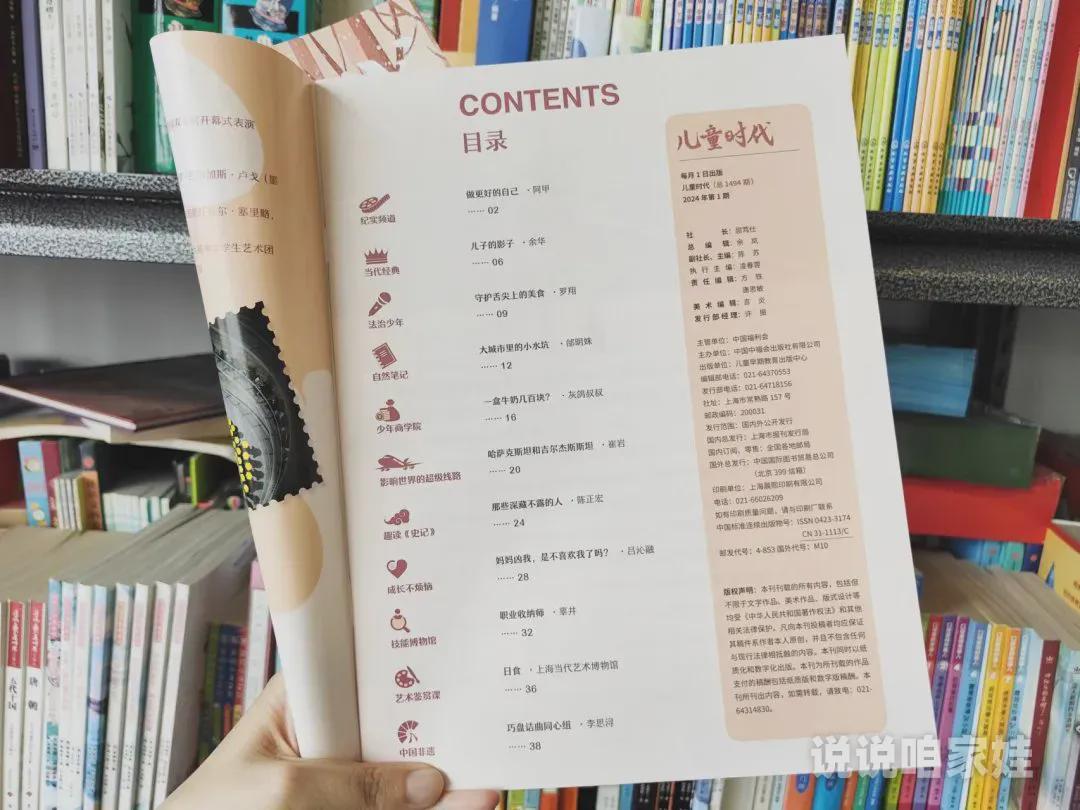 CONTENTS
目录
纪实频道
做更好的自己 ·阿甲
…… 02
当代经典
儿子的影子 ·余华
…… 06
法治少年
守护舌尖上的美食 ·罗翔
…… 09
自然笔记
大城市里的小水坑 ·邰明姝
…… 12
少年商学院
一盒牛奶几百块? ·灰鸽叔叔
…… 16
影响世界的超级线路
哈萨克斯坦和吉尔杰斯斯坦 ·崔岩
…… 20
趣读《史记》
那些深藏不露的人 ·陈正宏
…… 24
成长不烦恼
妈妈凶我,是不喜欢我了吗? ·吕沁融
…… 28
技能博物馆
职业收纳师 ·辜井
…… 32
艺术鉴赏课
日食 ·上海当代艺术博物馆
…… 36
中国非遗
巧盘诘曲同心组 ·李思浔
…… 38
儿童时代
每月1日出版
儿童时代(总1494期)
2024年第1期
社 长:
总 编 辑:余 岚
副社长、主编:陈 苏
执 行 主 编:凌春蓉
责 任 编 辑:方 轶
唐思敏
美 术 编 辑:言 炎
发行部经理:许 振
主管单位:中国福利会
主办单位:中国中福会出版社有限公司
出版单位:儿童早期教育出版中心
编辑部电话:021-64370553
发行部电话:021-64718156
社址:上海市常熟路157号
邮政编码:200031
发行范围:国内外公开发行
国内总发行:上海市报刊发行局
国内订阅、零售:全国各地邮局
国外总发行:中国国际图书贸易总公司
(北京399信箱)
印刷单位:上海晨熙印刷有限公司
电话:021-66026209
如有印刷质量问题,请与印刷厂联系
中国标准连续出版物号:ISSN 0423-3174
CN 31-1113/C
邮发代号:4-853 国外代号:M10
版权声明:本刊刊载的所有内容,包括但
不限于文字作品、美术作品、版式设计等
均受《中华人民共和国著作权法》和其他
相关法律保护。凡向本刊投稿者均应保证
其稿件系作者本人原创,并且不包含任何
与现行法律相抵触的内容。本刊同时以纸
质化和数字化出版。本刊为所刊载的作品
支付的稿酬包括纸质版和数字版稿酬。本
刊所刊出内容,如需转载,请致电:021-
64314830。
开幕式表演
加斯·卢戈(墨
尔·塞里略,
学生艺术团
五代十国
唐朝
说说咱家娃